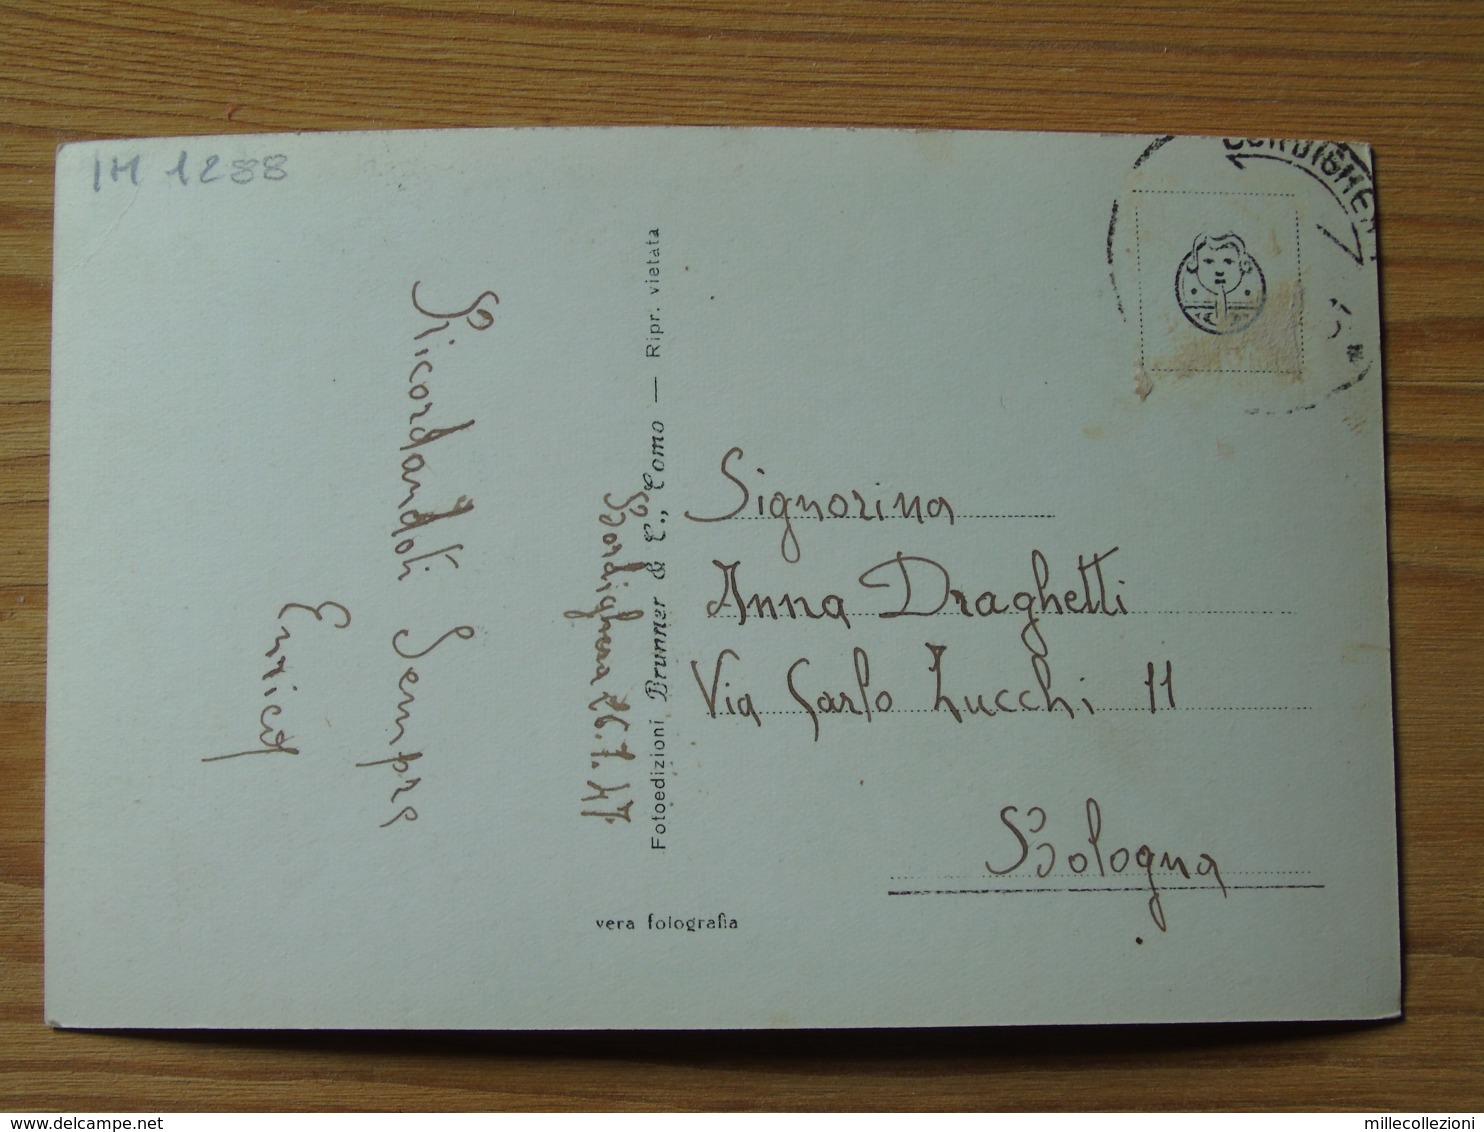 IM 1288
BORDIGHER
Ricordandoti Sempre
Enrico
Bordighera 26.1.47.
Fotoedizioni Brunner & C., Como — Ripr. vietata
vera fotografia
Signorina
Anna Draghetti
Via Carlo Zucchi 11
Bologna
millecollezioni